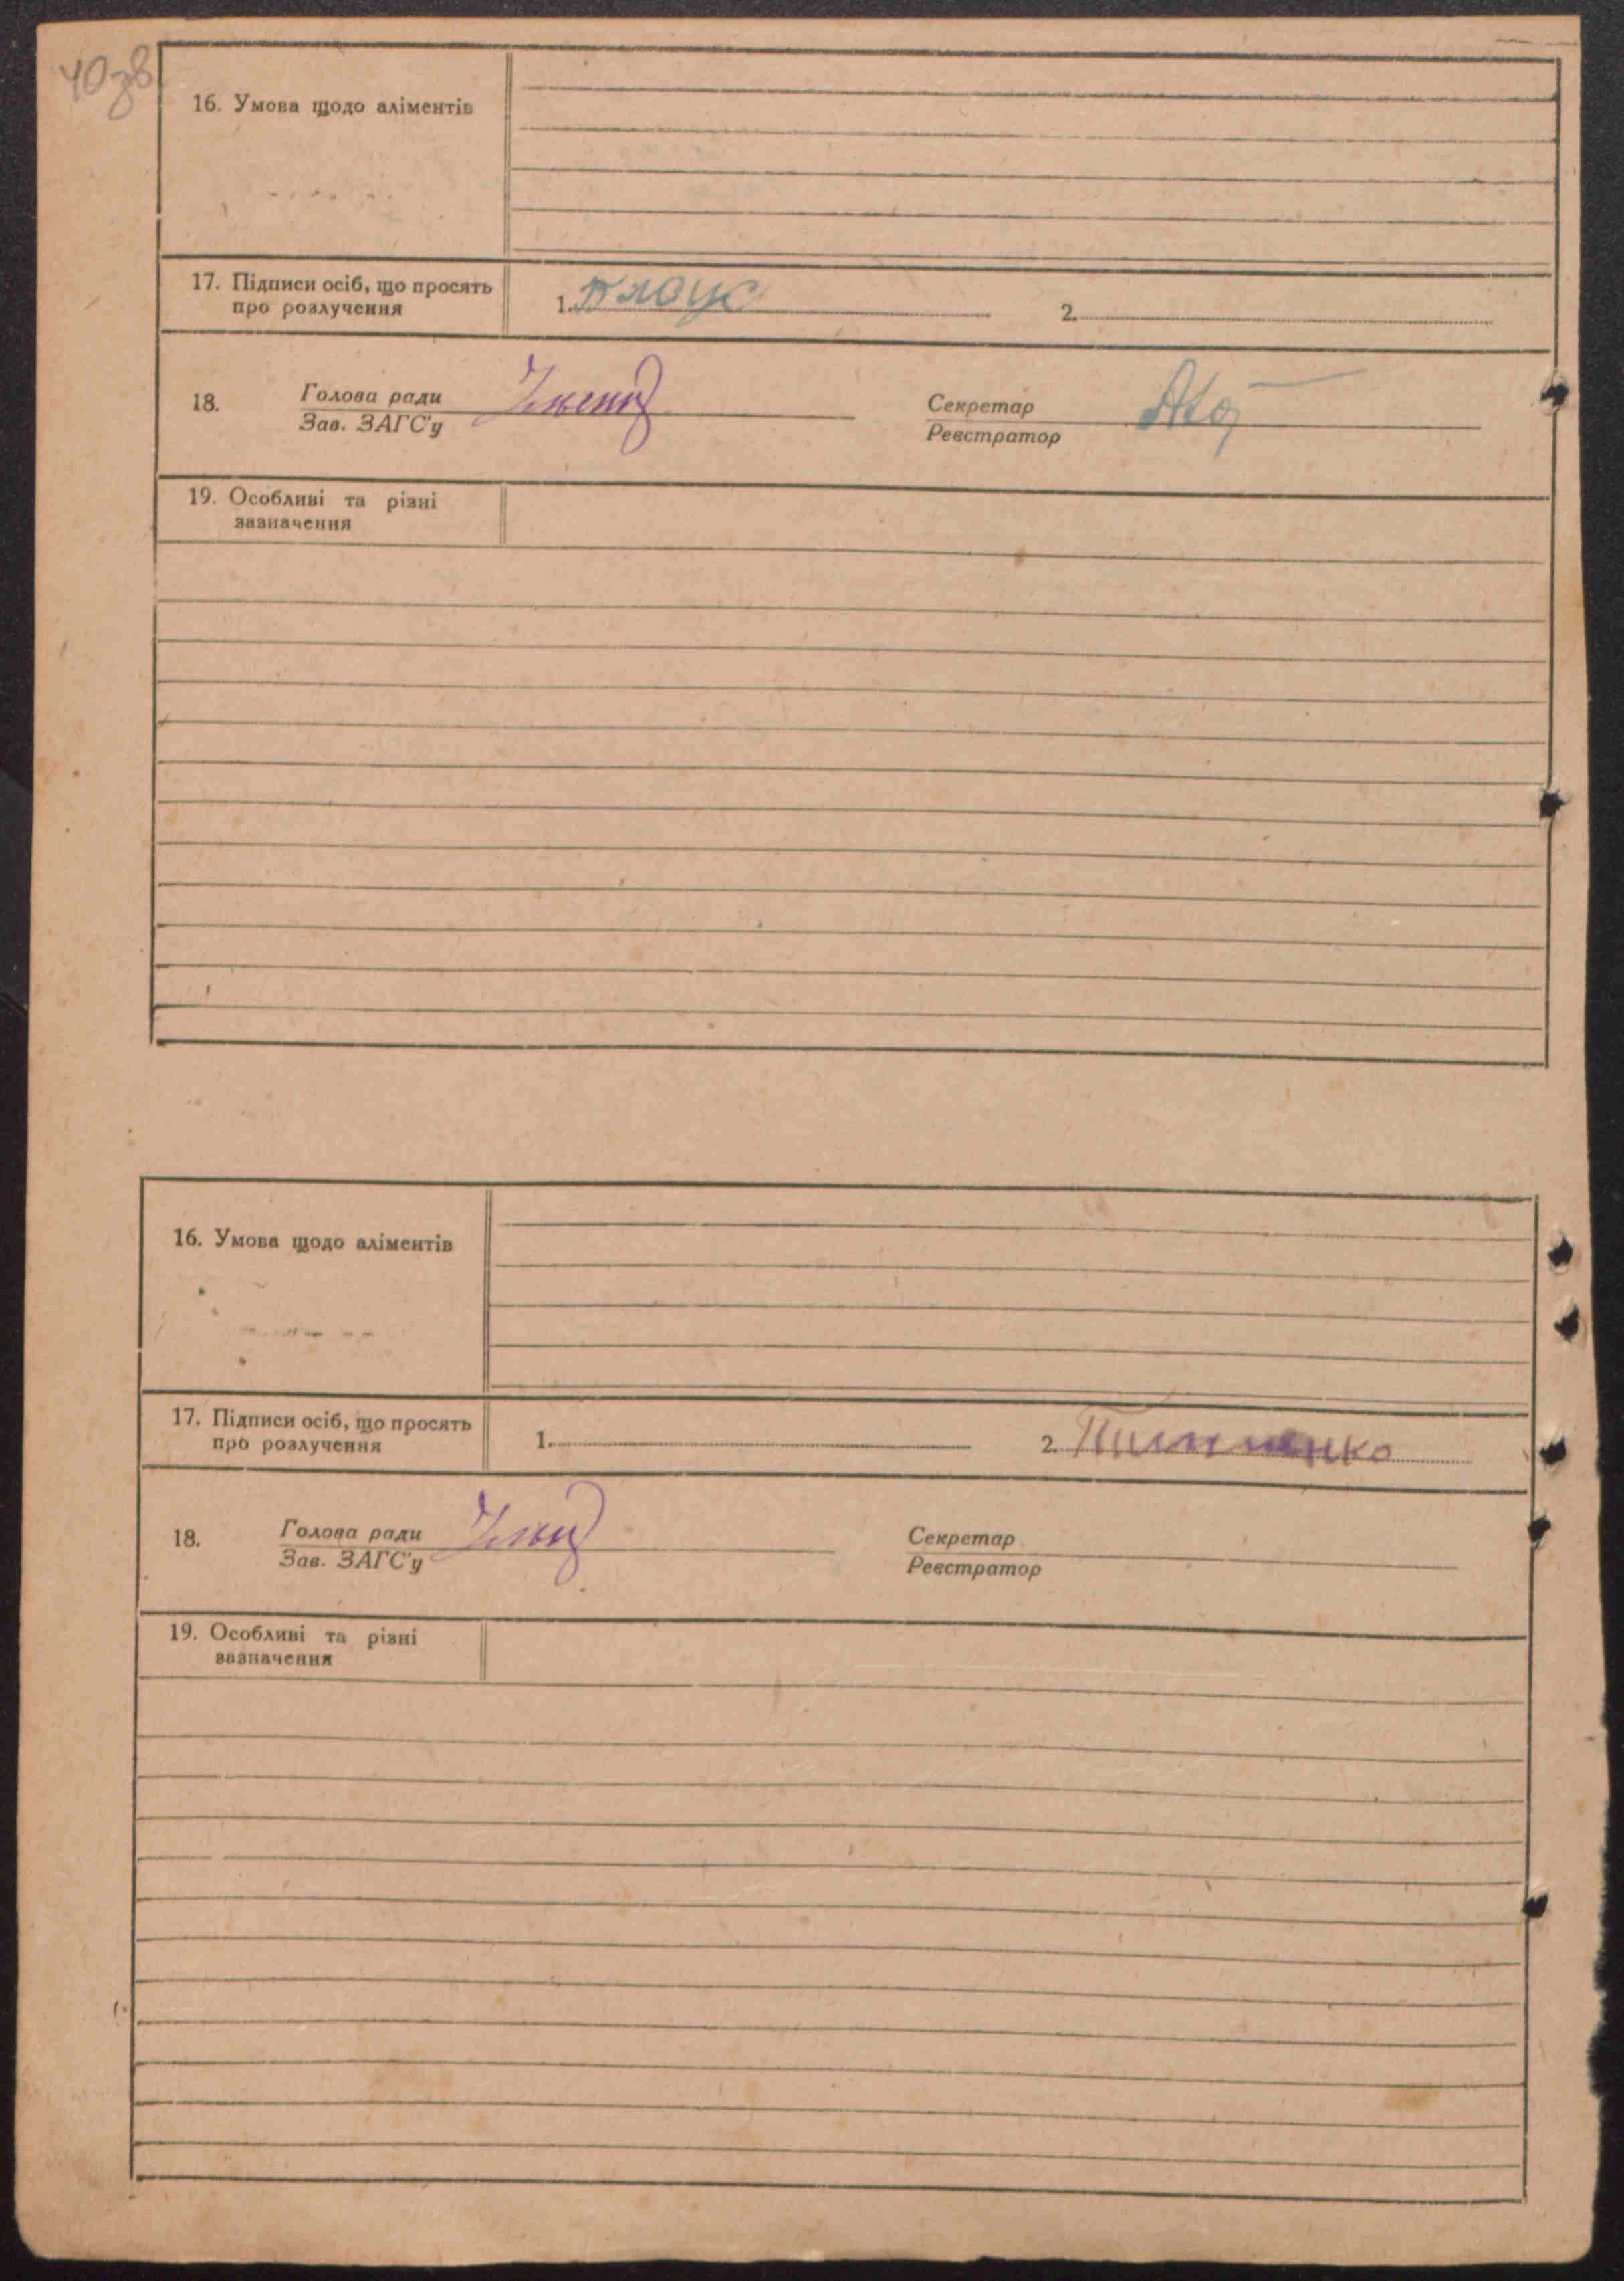 40зв
16. Умова щодо аліментів
17. Підписи осіб, що просять
про розлучення
1.
2.
18.
Голова ради
Зав. ЗАГС'у
Секретар
Реєстратор
19. Особливі та різні
зазначення
16. Умова щодо аліментів
17. Підписи осіб, що просять
про розлучення
1.
2.
18.
Голова ради
Зав. ЗАГС'у
Секретар
Реєстратор
19. Особливі та різні
зазначення